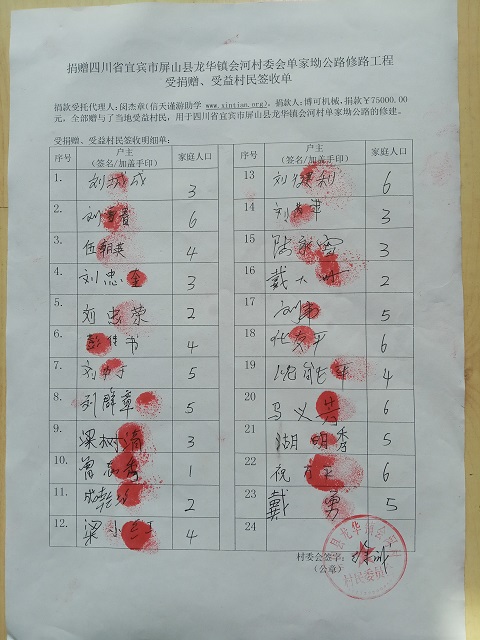 捐赠四川省宜宾市屏山县龙华镇会河村委会单家坳公路修路工程
受捐赠、受益村民签收单
捐款受托代理人：闵杰章(信天谨游助学 www.xintian.org)。捐款人：博可机械，捐款¥75000.00
元。全部赠与了当地受益村民，用于四川省宜宾市屏山县龙华镇会河村单家坳公路的修建。
受捐赠、受益村民签收明细单：
序号 户主（签名/加盖手印） 家庭人口 序号 户主（签名/加盖手印） 家庭人口
1. 刘 成 3 13 刘 利 6
2. 刘 6 14 刘 3
3. 伍朝英 4 15 陆 3
4. 刘忠全 3 16 戴 2
5. 刘忠荣 2 17 刘 5
6. 彭 书 4 18 平 6
7. 刘 5 19 4
8. 刘群章 5 20 马义 6
9. 梁树清 3 21 湖明秀 5
10. 曾 秀 1 22 祝 6
11. 成 2 23 戴勇 5
12. 梁小 4 24
村委会签字：
（公章）
县龙华镇会河
村民委员